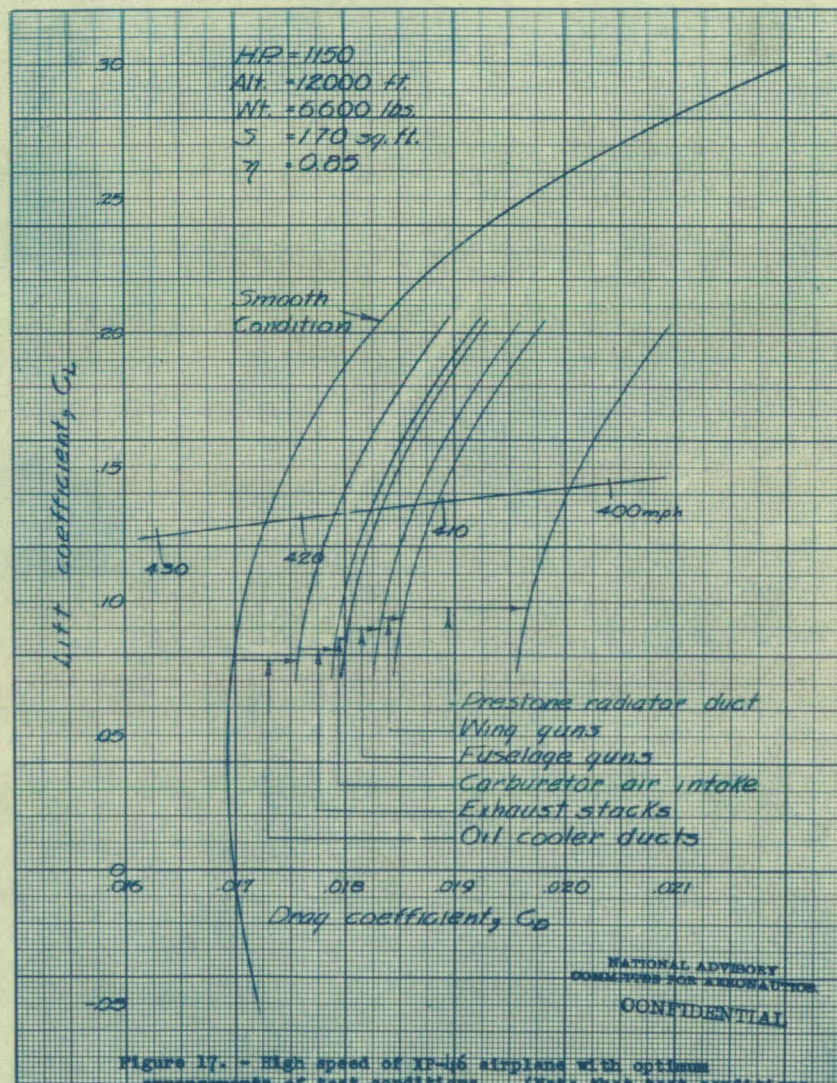 H.P. = 1150
Alt. = 12000 ft.
Wt. = 6600 lbs.
S = 170 sq. ft.
η = 0.85
.30
.25
Smooth
Condition
.20
Lift coefficient, CL
.15
430
420
410
400 mph
.10
Prestone radiator duct
Wing guns
.05
Fuselage guns
Carburetor air intake
Exhaust stacks
Oil cooler ducts
0
.016
.017
.018
.019
.020
.021
Drag coefficient, CD
-.05
NATIONAL ADVISORY
COMMITTEE FOR AERONAUTICS
CONFIDENTIAL
Figure 17. - High speed of XP-46 airplane with optimum